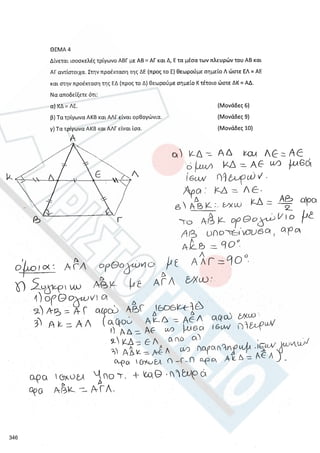 ΘΕΜΑ 4
Δίνεται ισοσκελές τρίγωνο ΑΒΓ με ΑΒ = ΑΓ και Δ, Ε τα μέσα των πλευρών του ΑΒ και
ΑΓ αντίστοιχα. Στην προέκταση της ΔΕ (προς το Ε) θεωρούμε σημείο Λ ώστε ΕΛ = ΑΕ
και στην προέκταση της ΕΔ (προς το Δ) θεωρούμε σημείο Κ τέτοιο ώστε ΔΚ = ΑΔ.
Να αποδείξετε ότι:
α) ΚΔ = ΛΕ. (Μονάδες 6)
β) Τα τρίγωνα ΑΚΒ και ΑΛΓ είναι ορθογώνια. (Μονάδες 9)
γ) Τα τρίγωνα ΑΚΒ και ΑΛΓ είναι ίσα. (Μονάδες 10)
Α
Κ Δ Ε Λ
Β Γ
α) ΚΔ = ΑΔ και ΛΕ = ΑΕ
όμως ΚΔ = ΑΕ ως μισά
ίσων πλευρών.
Άρα: ΚΔ = ΛΕ.
β) ΑΒ̂Κ: έχω ΚΔ = ΑΒ/2 άρα
το ΑΒ̂Κ ορθογώνιο με
ΑΒ υποτείνουσα, άρα
ΑΚ̂Β = 90°
όμοια: ΑΓ̂Λ ορθογώνιο με ΑΛ̂Γ = 90°.
γ) Συγκρίνω ΑΒ̂Κ με ΑΓ̂Λ έχω:
1) ορθογώνια
2) ΑΒ = ΑΓ αφού ΑΒ̂Γ ισοσκελές
3) ΑΚ = ΑΛ (αφού ΑΚ̂Δ = ΑΕ̂Λ αφού έχω:
1) ΑΔ = ΑΕ ως μισά ίσων πλευρών
2) ΚΔ = ΕΛ από α)
3) ΑΔ̂Κ = ΑΕ̂Λ ως παραπληρωμ. ίσων γωνιών
άρα ισχύει Π-Γ-Π άρα ΑΚ̂Δ = ΑΕ̂Λ).
άρα ισχύει Υποτ. + καθ. πλευρά
άρα ΑΒ̂Κ = ΑΓ̂Λ.
346